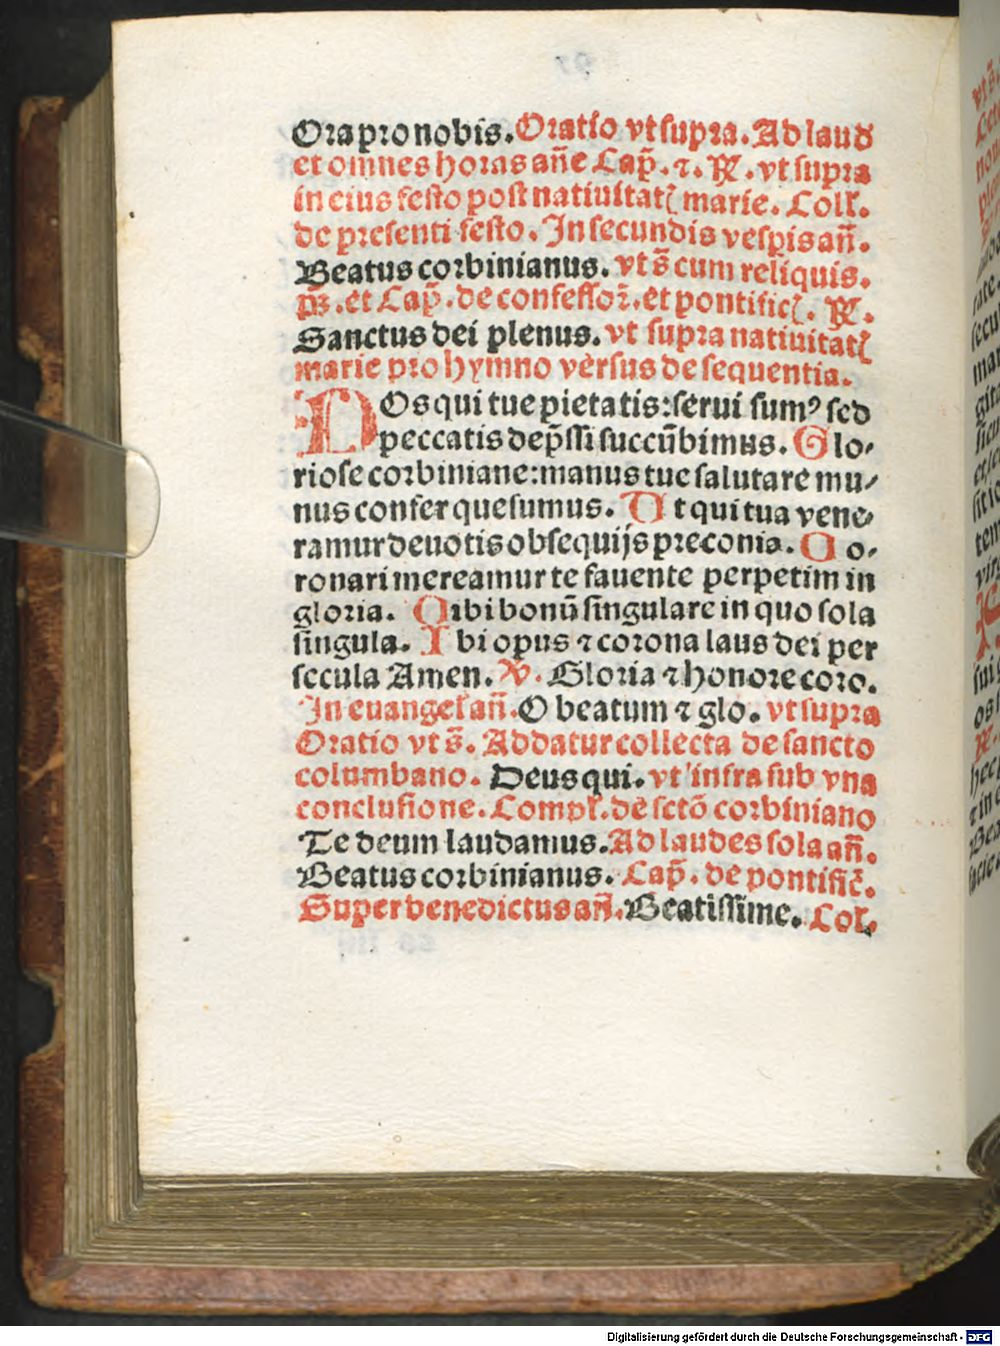 Ora pro nobis. Oratio vt supra. Ad laud
et omnes horas añe Cap̃. ⁊. ℟. vt supra
in eius festo post natiuitatꝭ marie. Coll.
de presenti festo. In secundis vesp̱is añ.
Beatus corbinianus. vt s̃ cum reliquis.
p̃s. et Cap̃. de confessoꝝ. et pontificꝭ. ℟.
Sanctus dei plenus. vt supra natiuitatꝭ
marie pro hymno versus de sequentia.
NOs qui tue pietatis: serui sumꝰ sed
peccatis dep̃ssi succũbimus. Glo-
riose corbiniane: manus tue salutare mu-
nus confer quesumus. Ut qui tua vene-
ramur deuotis obsequijs preconia. Co-
ronari mereamur te fauente perpetim in
gloria. Cibi bonũ singulare in quo sola
singula. Ibi opus ⁊ corona laus dei per
secula Amen. ℣. Gloria ⁊ honore coro.
In euangeł añ. O beatum ⁊ glo. vt supra
Oratio vt s̃. Addatur collecta de sancto
columbano. Deus qui. vt infra sub vna
conclusione. Compł. de sctõ corbiniano
Te deum laudamus. Ad laudes sola añ.
Beatus corbinianus. Cap̃. de pontific̃.
Super benedictus añ. Beatissime. Col.
Digitalisierung gefördert durch die Deutsche Forschungsgemeinschaft - DFG